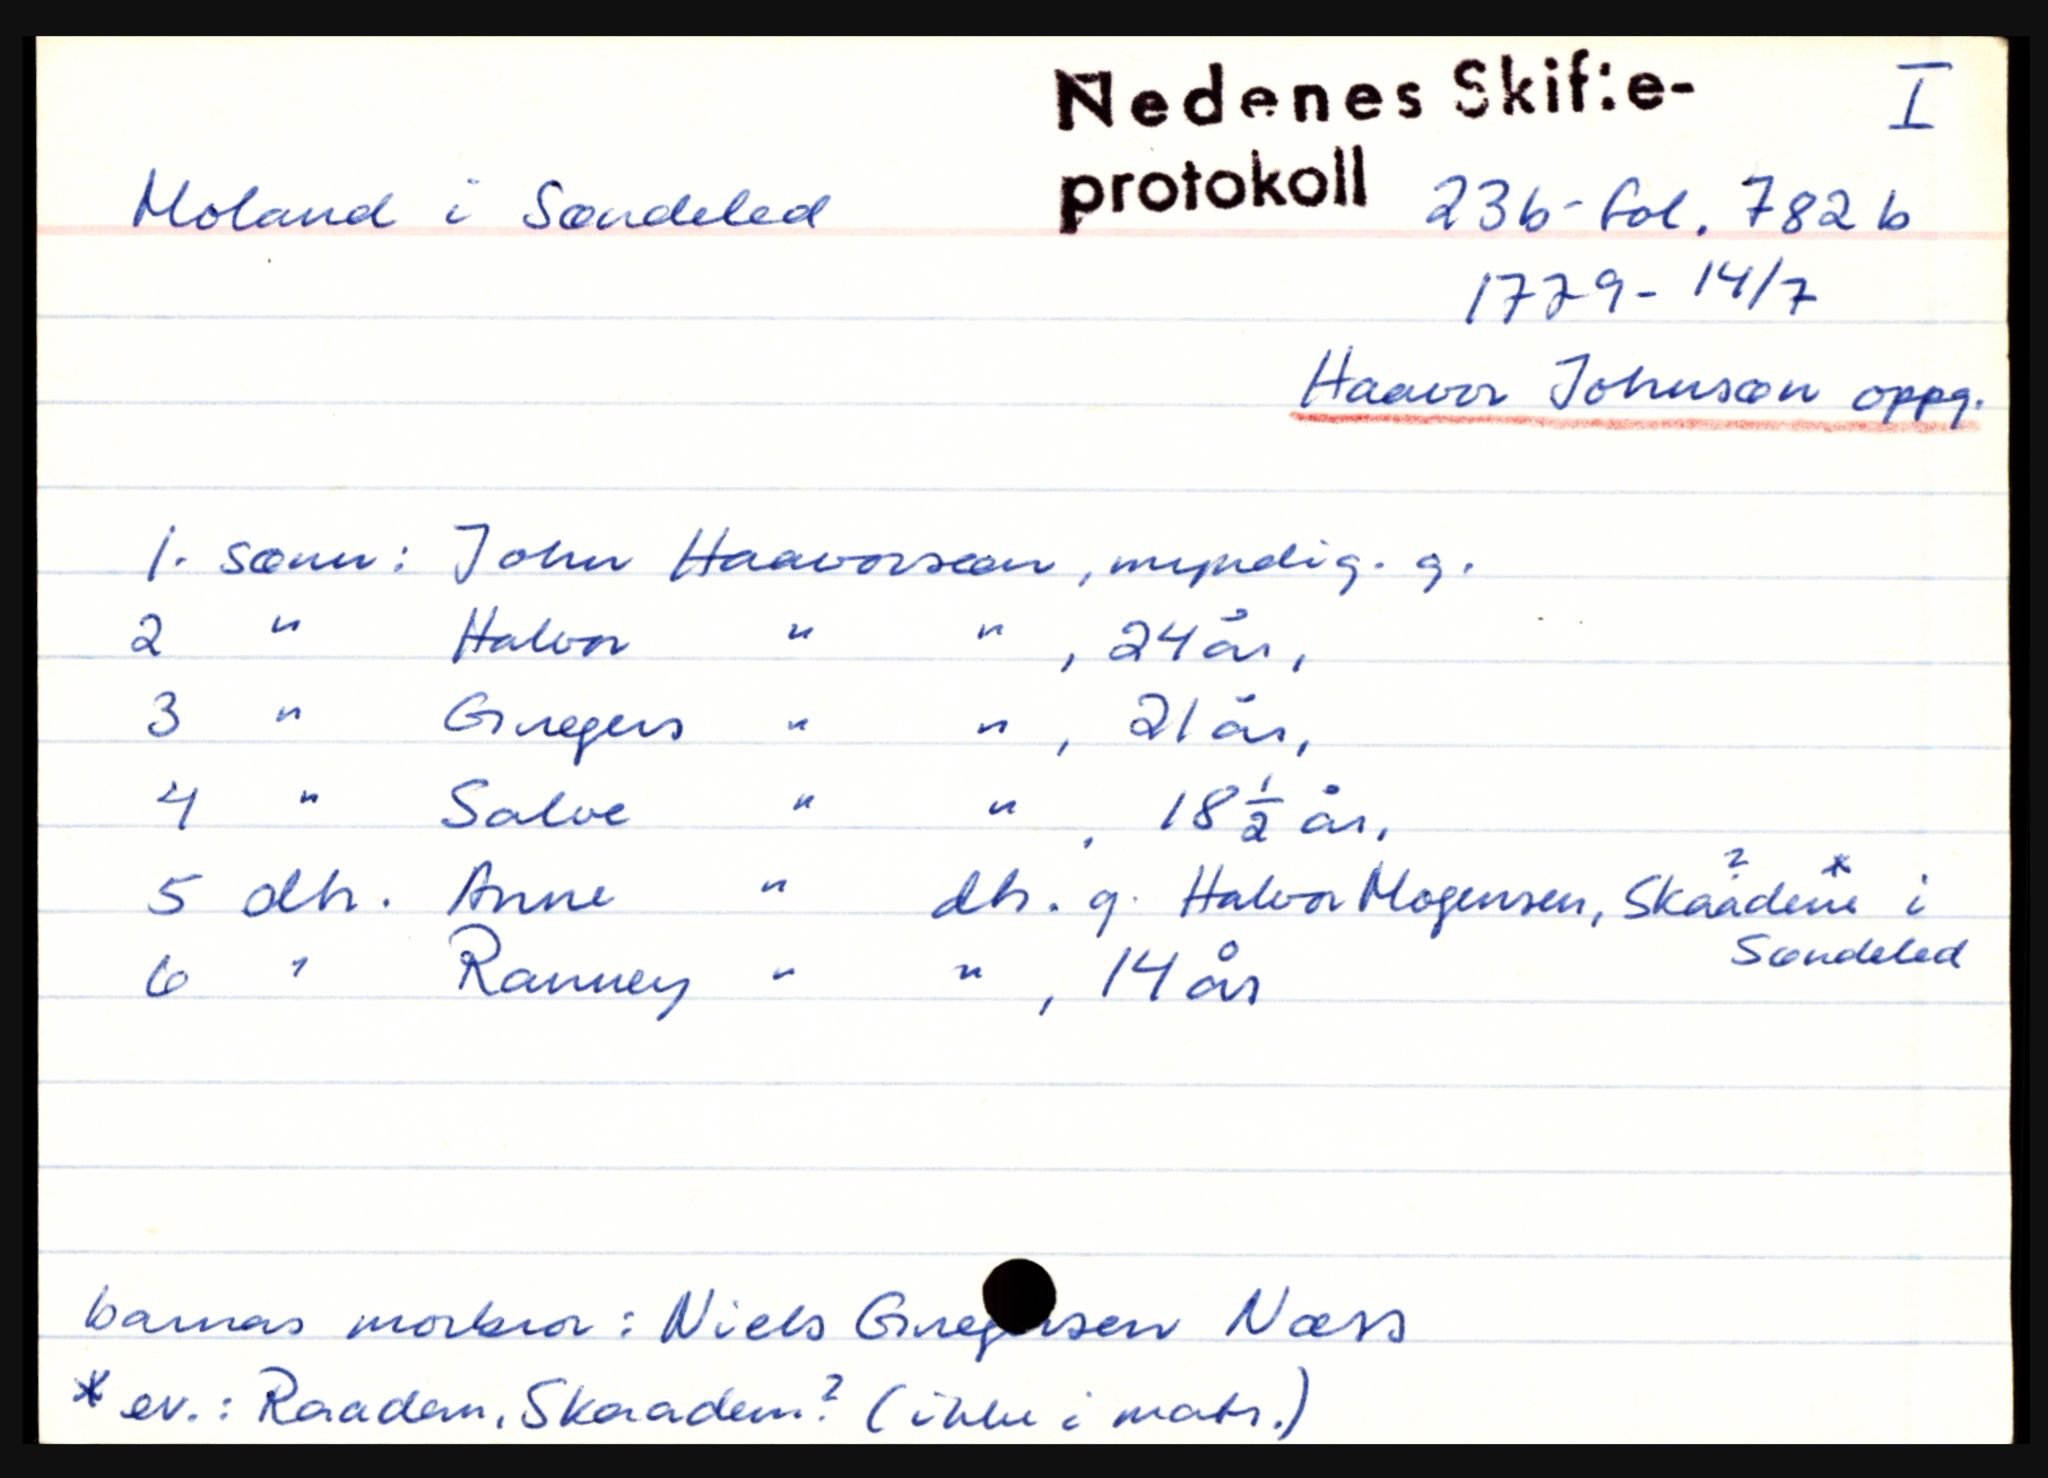 Nedenes Skifte- I
Moland i Søndeled protokoll 23b - fol. 782b
1779 - 14/7
Haavor Johnsøn oppg.
1. sønn: John Haavorsøn, myndig. g.
2 " Halvor " " , 24 år,
3 " Gregers " " , 21 år,
4 " Salve " " , 18 1/2 år,
5 dtr. Anne " dtr. g. Halvor Mogensen, Skaadene ? * i
Søndeled
6 " Ranney " " , 14 år
barnas morbror: Niels Gregersen Næss
* ev.: Raaden, Skaaden? (ikke i matr.)